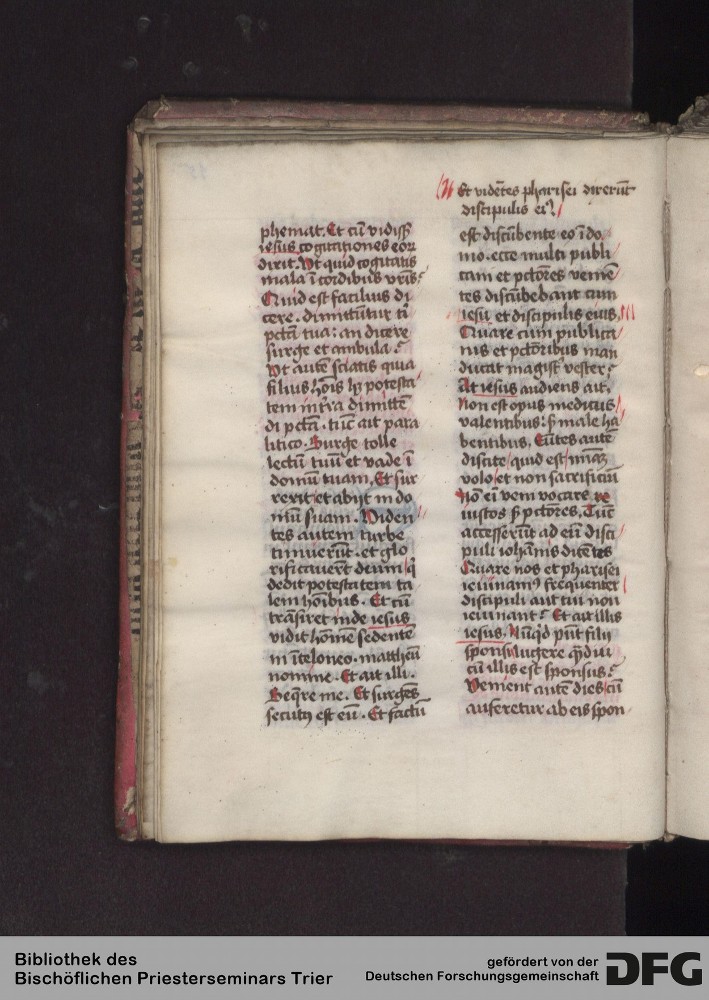 phemat. Et cū vidiss&
iesus cogitationes eoꝝ
dixit. Vt quid cogitatis
mala ī cordibus vr̄is?
Quid est facilius di
cere. dimittūtur ti
pctā tua: an dicere
surge et ambula?
Vt autē sciatis quia
filius hoīs hꝫ potesta
tem in tr̄ra dimittē
di pctā. tūc ait para
litico. Surge tolle
lectū tuū et vade ī
domū tuam. Et sur
rexit et abijt in do
mū suam. Viden
tes autem turbe
timuerūt. et glo
rificauerūt deum qͥ
dedit potestatem ta
lem hoībus. Et cū
trāsiret inde iesus
vidit hoīmē sedentē
in teloneo. matheū
nomine. Et ait illi.
Seq̄re me. Et surgēs
secutꝰ est eū. Et factū
Et vidētes pharisei dixerūt
discipulis eiꝰ
est discūbente eo ī do
mo. ecce multi publi
cani et pctōres venie
tes discūbebant cum
iesu et discipulis eius.
Quare cum publica
nis et pctōribus man
ducat magist' vester?
At iesus audiens ait.
Non est opus medicus
valentibus: s̄ male ha
bentibus. Eūtes autē
discite quid est mīaꝫ
volo et non sacrificiū
nō eī veni vocare
iustos s̄ pctōres. Tūc
accesserūt ad eū disci
puli iohānis dicētes
Quare nos et pharisei
ieiunamꝰ frequenter
discipuli aut tui non
ieiunant? Et ait illis
iesus. Nūqͥd pn̄t filij
sponsi lugere qͣ̄diu
cū illis est sponsus?
Venient autē dies cū
auferetur ab eis spon
Bibliothek des
Bischöflichen Priesterseminars Trier
gefördert von der
Deutschen Forschungsgemeinschaft
DFG